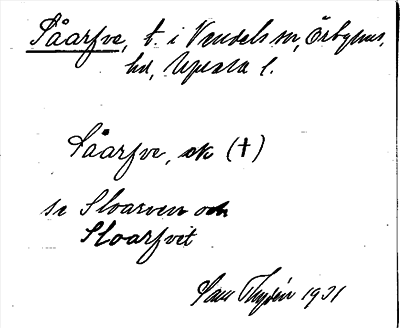 Såarfve, t. i Vendels sn, Örbyhus,
hd, Upsala l.
Såarfve, sk (†)
se Sloarven och
Sloarfvet
Sam Thysén 1931